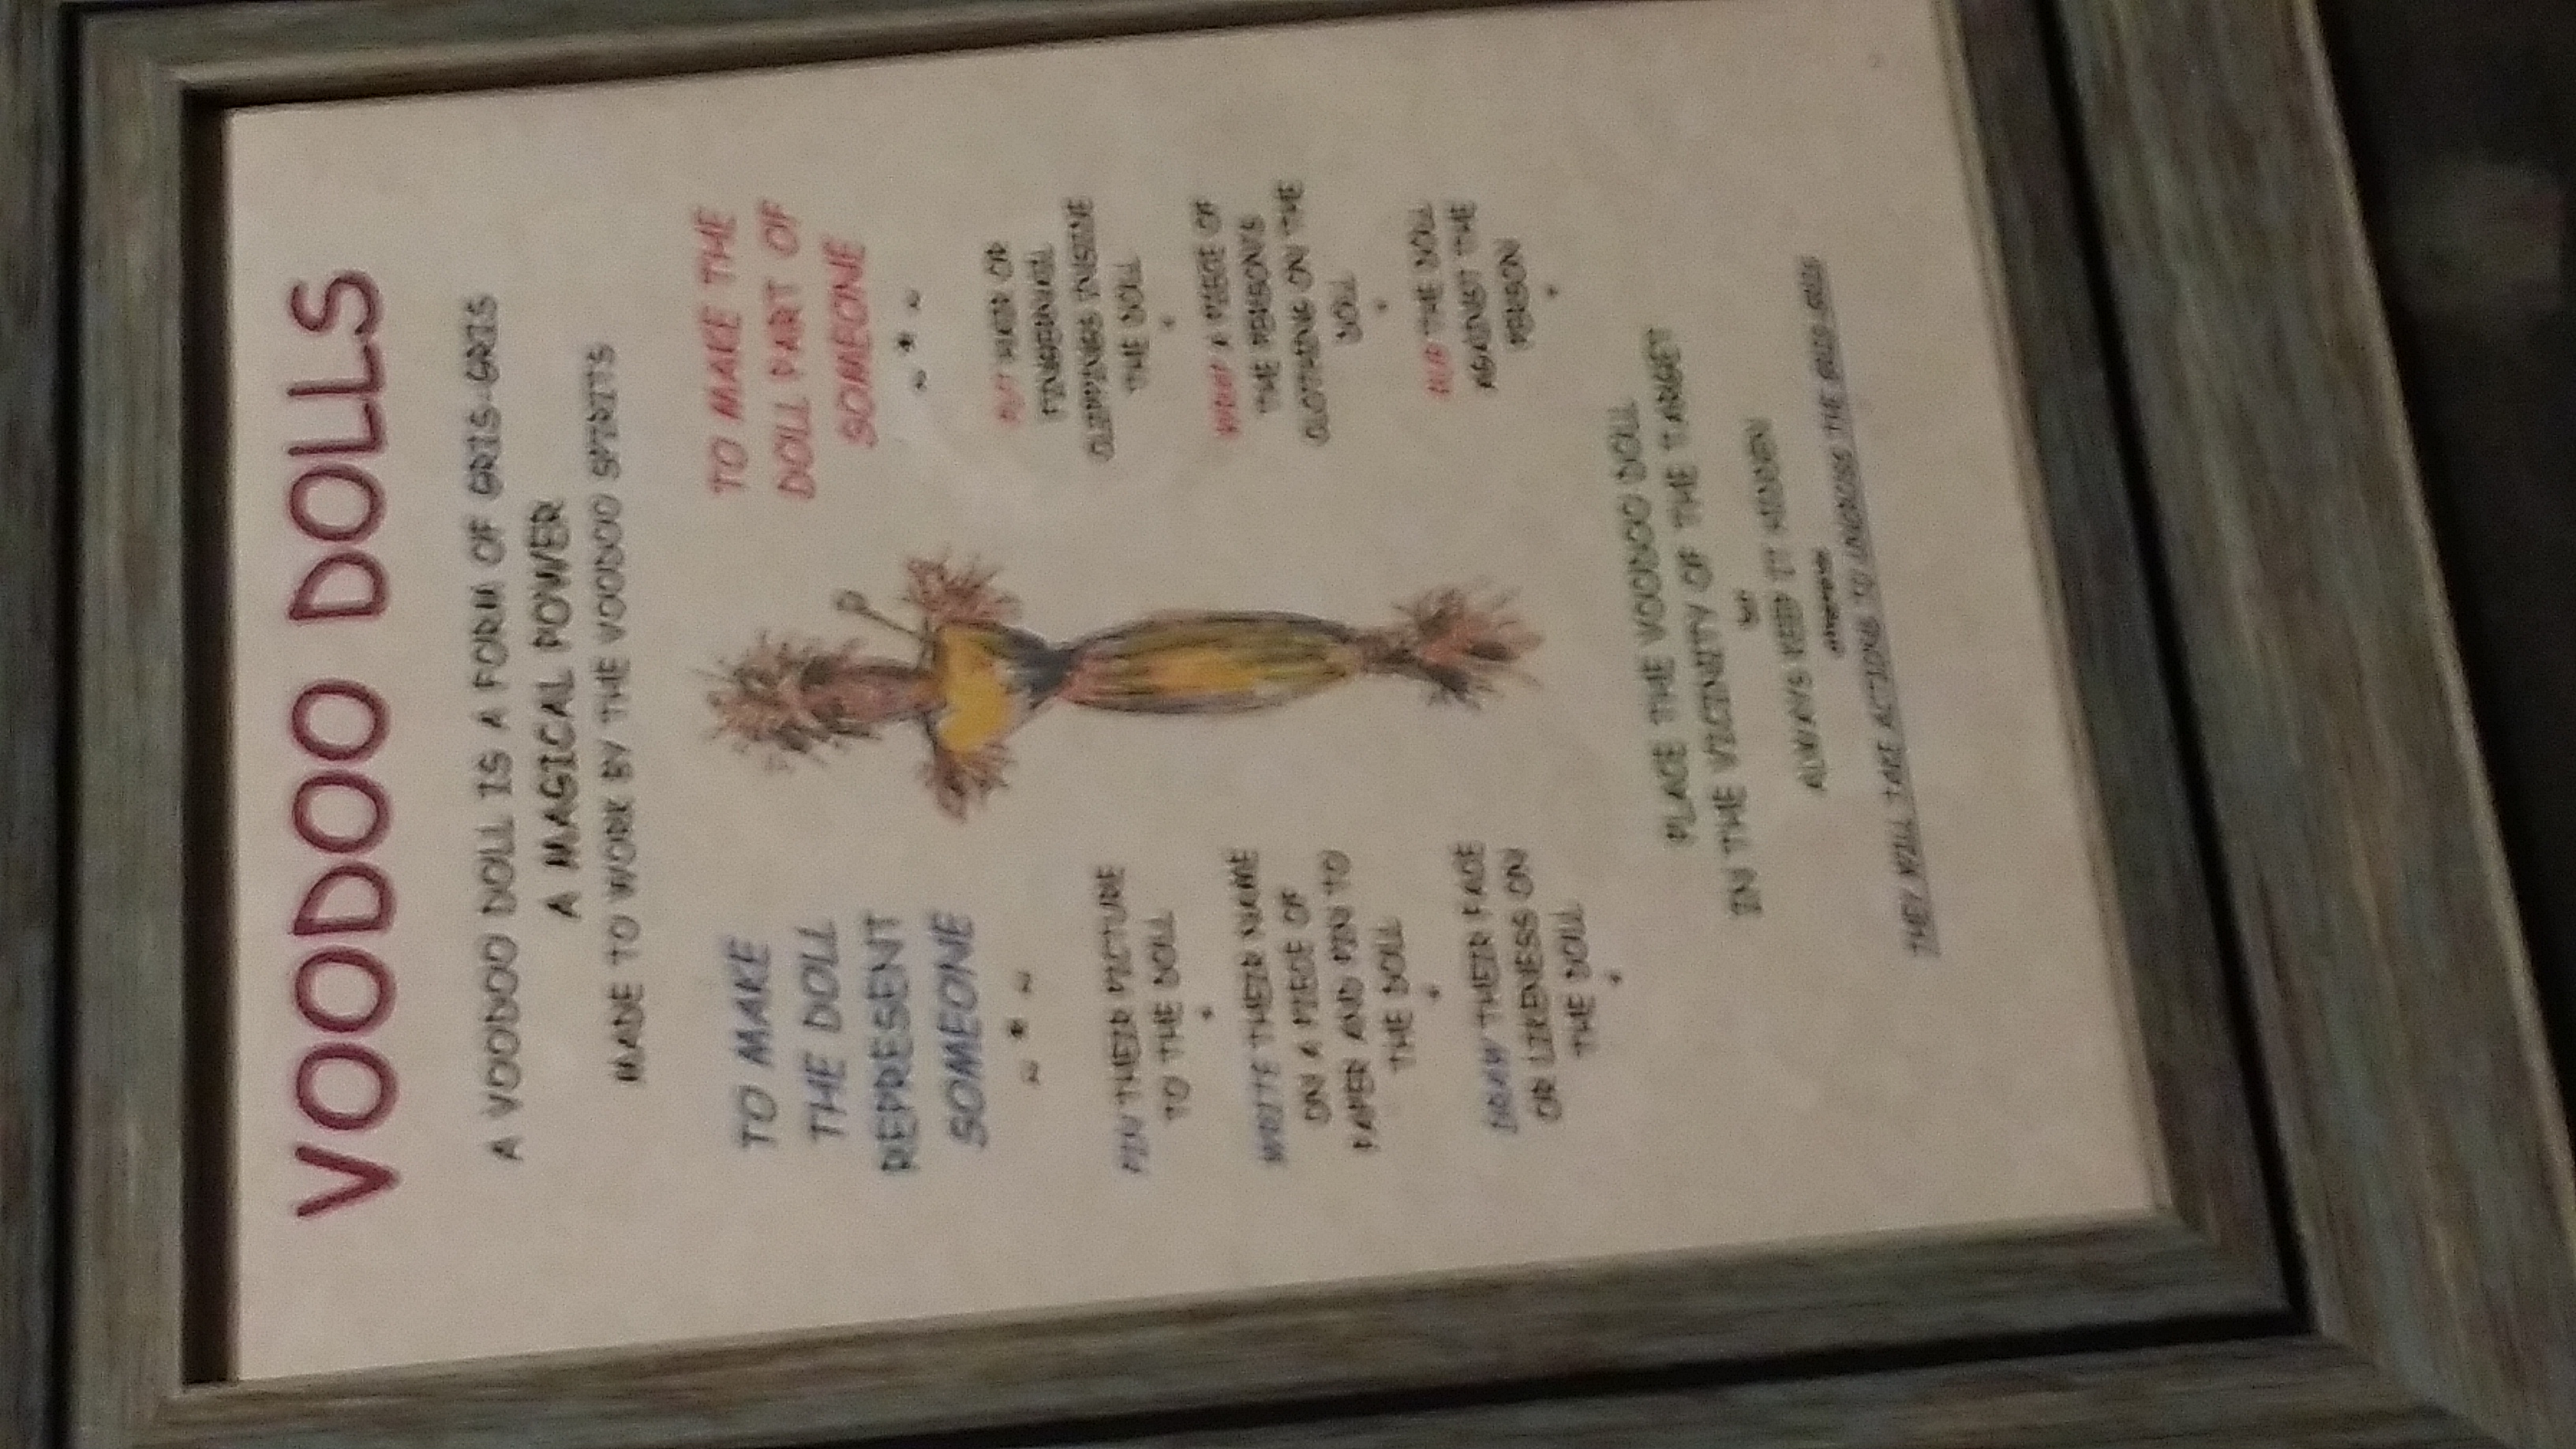 VOODOO DOLLS
A VOODOO DOLL IS A FORM OF GRIS-GRIS
A MAGICAL POWER
MADE TO WORK BY THE VOODOO SPIRITS
TO MAKE
THE DOLL
REPRESENT
SOMEONE
~ * ~
PIN THEIR PICTURE
TO THE DOLL
WRITE THEIR NAME
ON A PIECE OF
PAPER AND PIN TO
THE DOLL
DRAW THEIR FACE
OR LIKENESS ON
THE DOLL
TO MAKE THE
DOLL PART OF
SOMEONE
~ * ~
PUT HAIR OR
FINGERNAIL
CLIPPINGS INSIDE
THE DOLL
WRAP A PIECE OF
THE PERSON'S
CLOTHING ON THE
DOLL
RUB THE DOLL
AGAINST THE
PERSON
PLACE THE VOODOO DOLL
IN THE VICINITY OF THE TARGET
ALWAYS KEEP IT HIDDEN
THEY WILL TAKE ACTIONS TO UNCROSS THE GRIS-GRIS